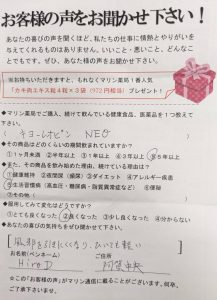 お客様の声をお聞かせ下さい！
あなたの喜びの声を聞くほど、私たちの仕事に情熱とやりがいを
与えてくれるものはありません。いいこと・悪いこと、どんなこ
とでもです。ぜひ、あなたの声をお聞かせ下さい。
※お持ちいただきますと、もれなくマリン薬局1番人気
「カキ肉エキス粒4粒×3袋（972円相当） プレゼント！
◆マリン薬局でご購入、続けて飲んでいる健康食品、医薬品を1つ教えて
下さい。
（ キヨーレオピン NEO ）
◆その商品はどのくらいの期間飲まれていますか？
①1ヶ月未満 ②半年以上 ③1年以上 ④3年以上 ⑤5年以上
◆また、その商品を飲み始めた理由、続けている理由は？
①健康維持 ②夜間尿（頻尿） ③ダイエット ④アレルギー疾患
⑤生活習慣病（高血圧・糖尿病・脂質異常症など） ⑥膝関節
⑦その他（ ）
◆服用してみて変化はどうですか？
①とても良くなった ②良くなった ③少し良くなった ④分からない
◆あなたの喜びの気持ちをぜひ聞かせて下さい。
風邪を引きにくくなり、ひいても軽い
お名前(ペンネーム) ご住所
Hiro D 阿賀中央
☆この「お客様の声」がマリン通信に載ることがございます。何卒、
ご了承下さいませ。